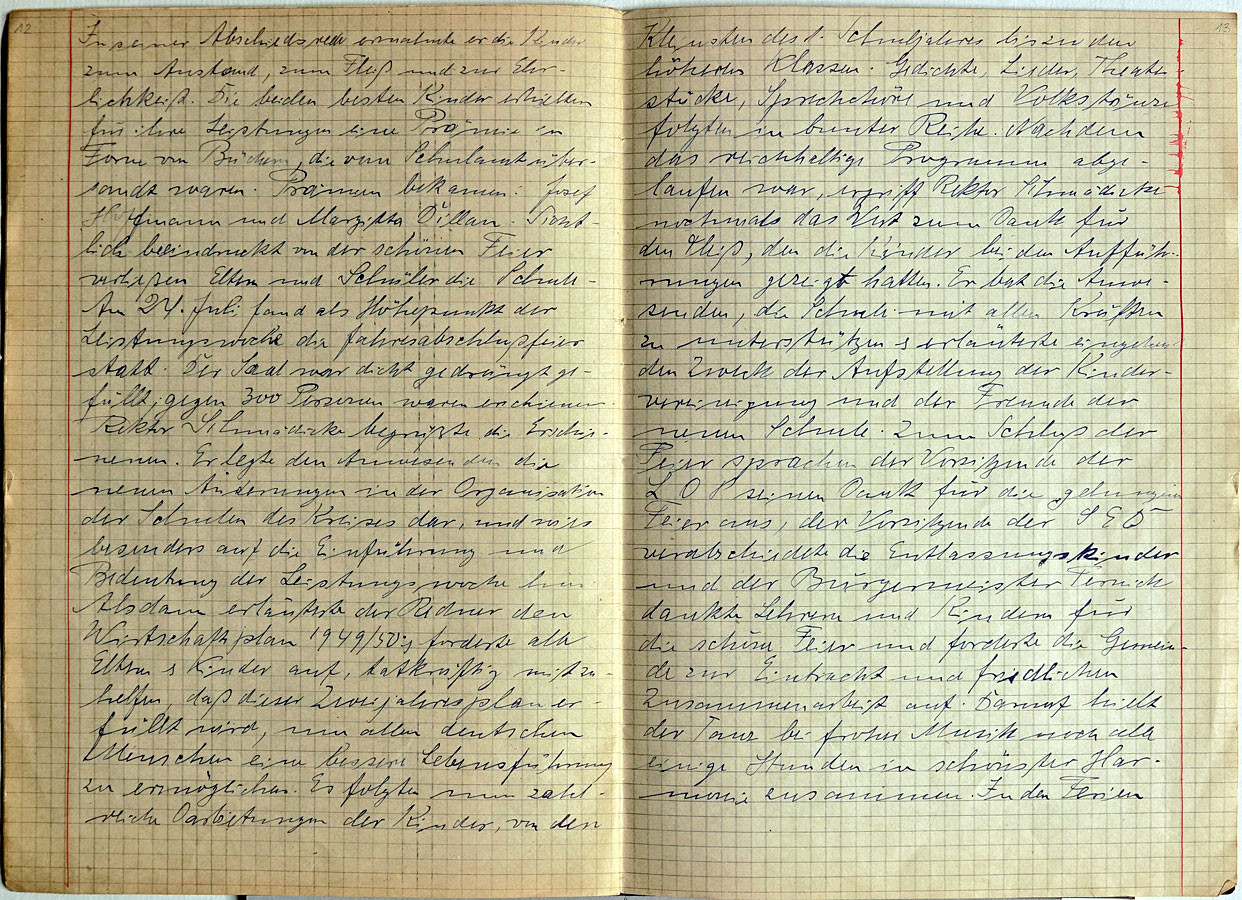 12
In seiner Abschiedsrede ermahnte er die Kinder
zum Anstand, zum Fleiß und zur Ehr-
lichkeit. Die beiden besten Kinder erhielten
für ihre Leistungen eine Prämie in
Form von Büchern, die vom Schulamt über-
sandt waren. Prämien bekamen: Josef
Hoffmann und Margitta Dillan. Sicht-
lich beeindruckt von der schönen Feier
verließen Eltern und Schüler die Schule.
Am 24. Juli fand als Höhepunkt der
Leistungswoche die Jahresabschlußfeier
statt. Der Saal war dicht gedrängt ge-
füllt, gegen 300 Personen waren erschienen.
Rektor Schmädicke begrüßte die Erschie-
nenen. Er legte den Anwesenden die
neuen Äuserungen in der Organisation
der Schulen des Kreises dar, und wies
besonders auf die Einführung und
Bedeutung der Leistungswoche hin.
Alsdann erläuterte der Redner den
Wirtschaftsplan 1949/50; forderte alle
Eltern & Kinder auf, tatkräftig mitzu-
helfen, daß dieser Zweijahresplan er-
füllt wird, um allen deutschen
Menschen eine bessere Lebensführung
zu ermöglichen. Es folgten nun zahl-
reiche Darbietungen der Kinder, von den
13
Kleinsten des 1. Schuljahres bis zu den
höheren Klassen. Gedichte, Lieder, Theater-
stücke, Sprechchöre und Volkstänze
folgten in bunter Reihe. Nachdem
das reichhaltige Programm abge-
laufen war, ergriff Rektor Schmädicke
nochmals das Wort zum Dank für
den Fleiß, den die Kinder bei den Aufführ-
rungen gezeigt hatten. Er bat die Anwe-
senden, die Schule mit allen Kräften
zu unterstützen & erläuterte eingehend
den Zweck der Aufstellung der Kinder-
vereinigung und der Freunde der
neuen Schule. Zum Schluß der
Feier sprachen der Vorsitzende der
L D P seinen Dank für die gelungene
Feier aus, der Vorsitzende der S E D
verabschiedete die Entlassungskinder
und der Bürgermeister
dankte Lehrern und Kindern für
die schöne Feier und forderte die Gemein-
de zur Eintracht und friedlichen
Zusammenarbeit auf. Darauf hielt
der Tanz bei froher Musik noch alle
einige Stunden in schönster Har-
monie zusammen. In den Ferien